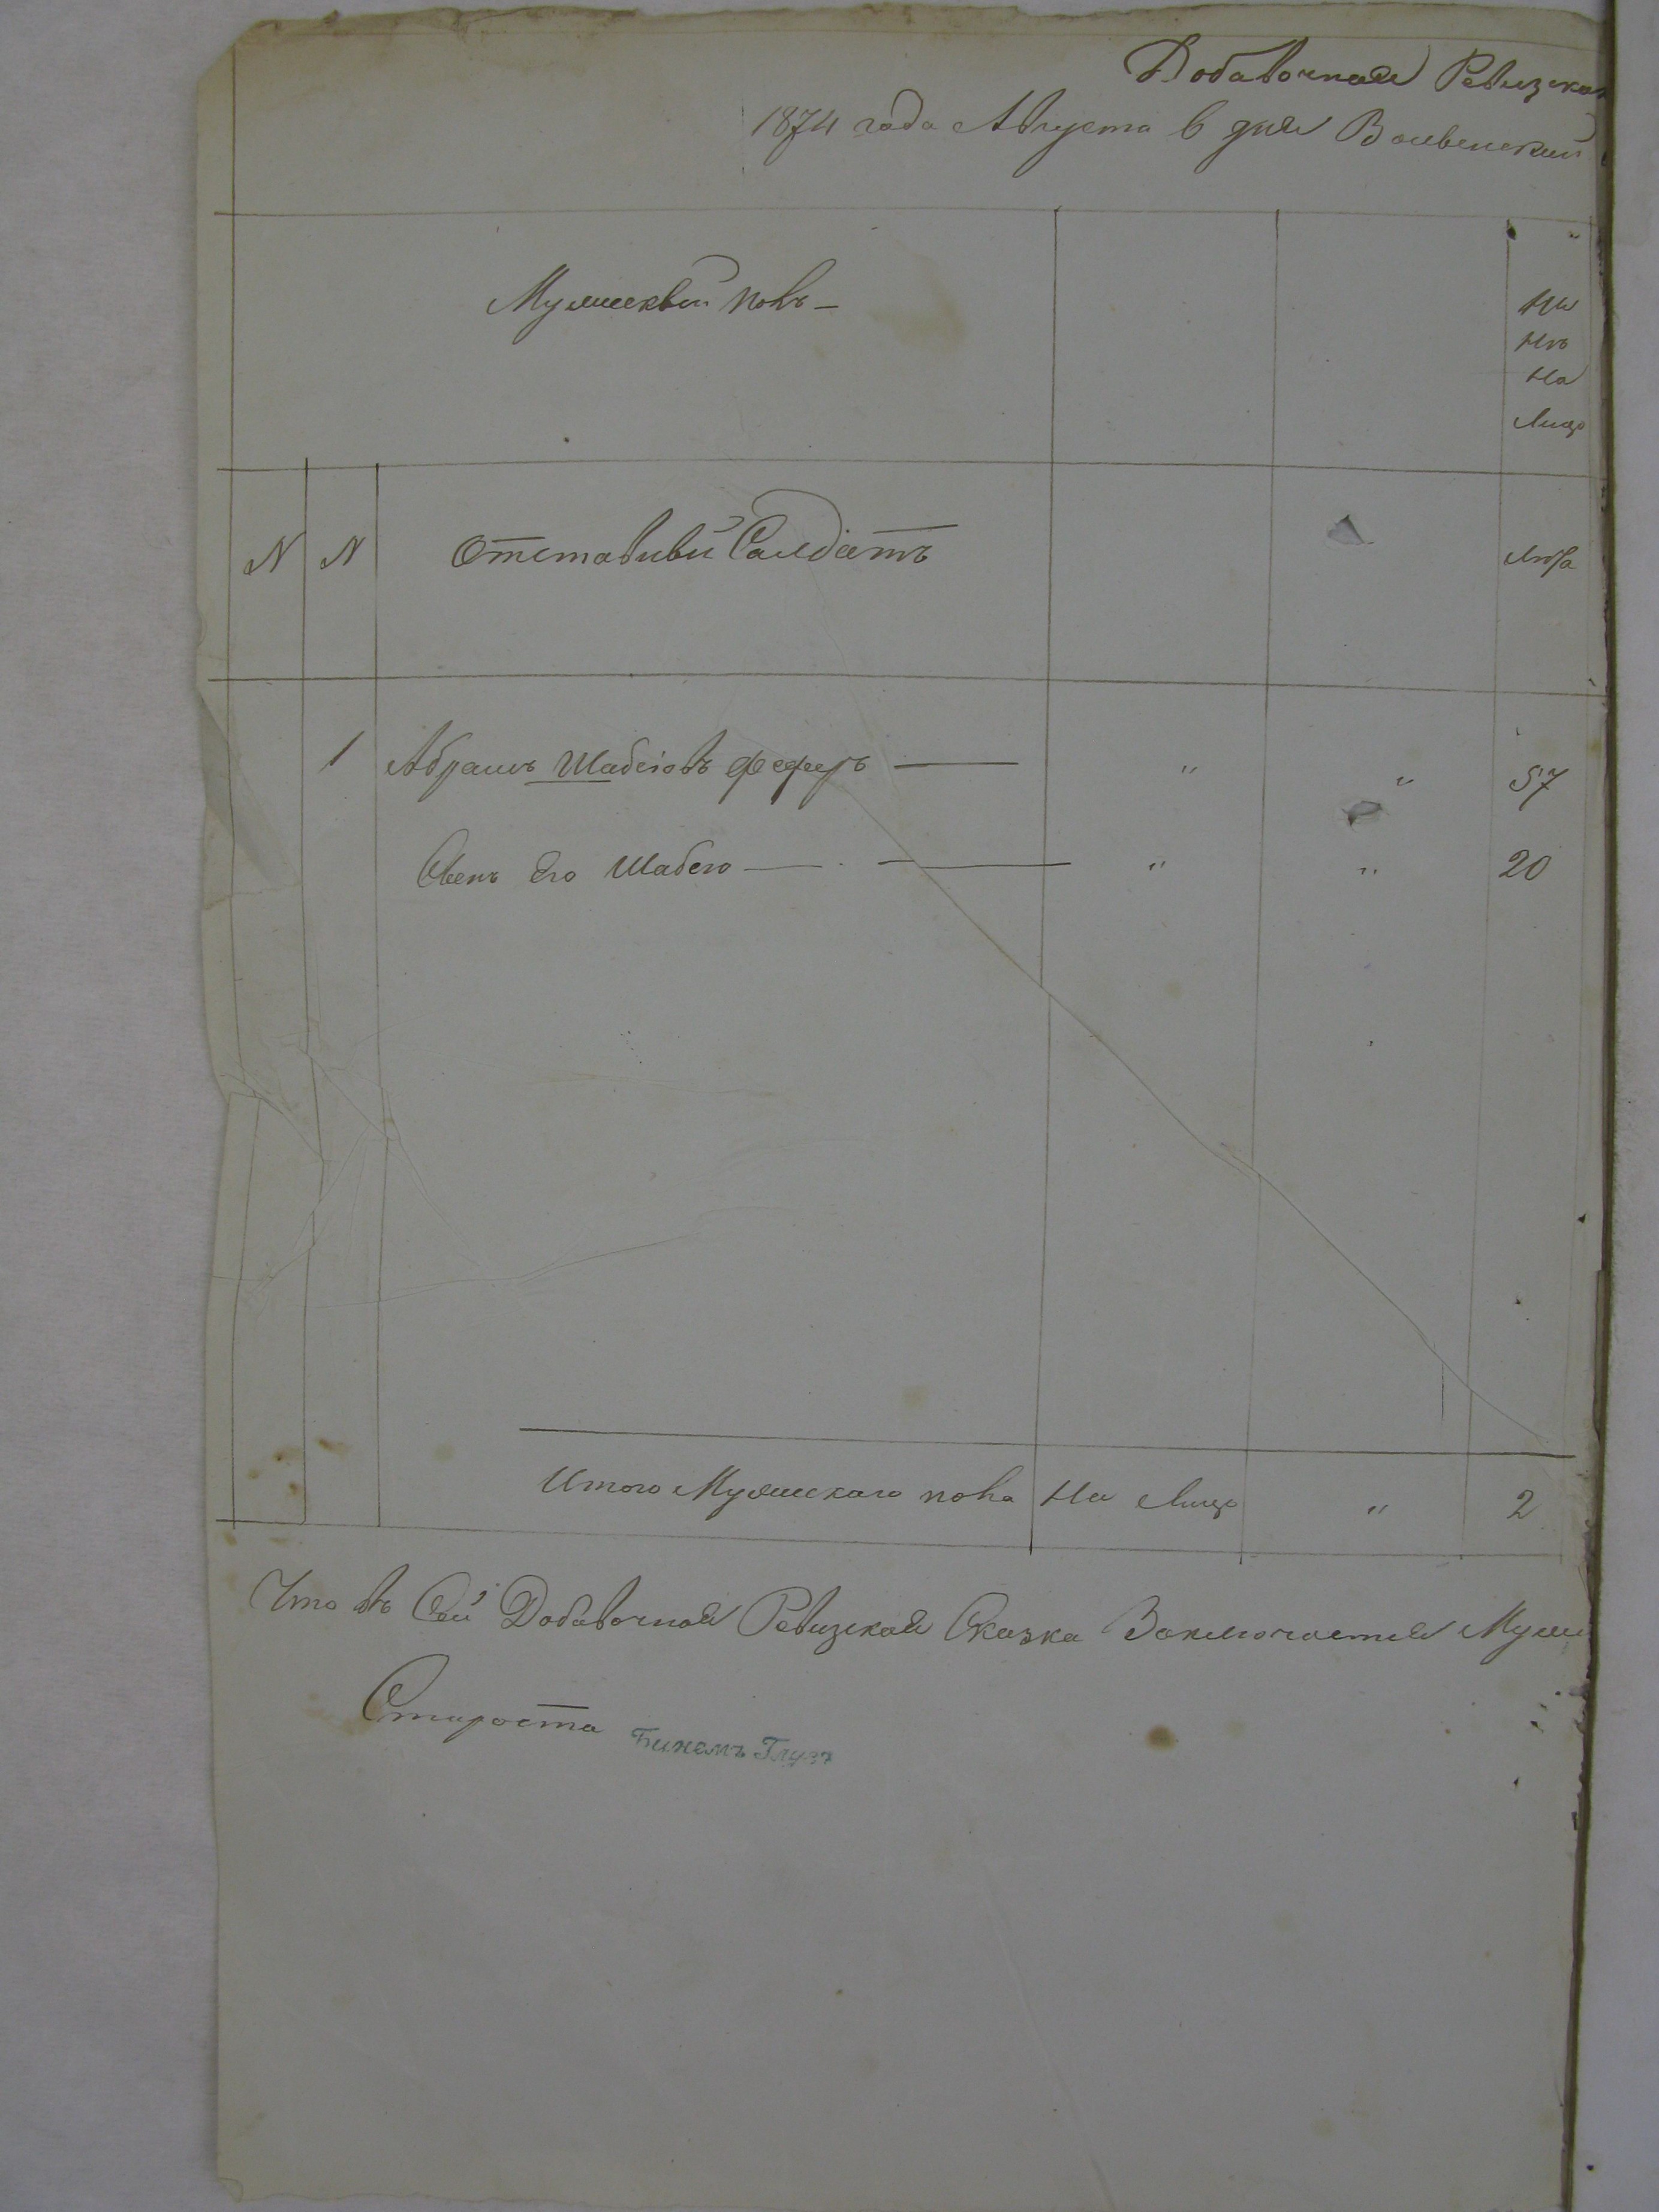 Добавочная Ревизская
1874 года Августа 6 дня
Мужескый полъ —
Ны
Нѣ
На
Лицо
N N Отставный Салдатъ Лѣта
1 Абрамъ Шабсіовъ Феферъ — " " 57
Сынъ Его Шабсо — — " " 20
Итого Мужескаго пола На Лицо " 2
Что въ Сей Добавочной Ревизской Сказка Заключается Муже
Староста Бинемъ Глузъ